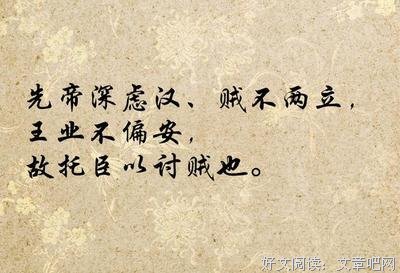 先帝深虑汉、贼不两立，
王业不偏安，
故托臣以讨贼也。
好文阅读：文章吧网